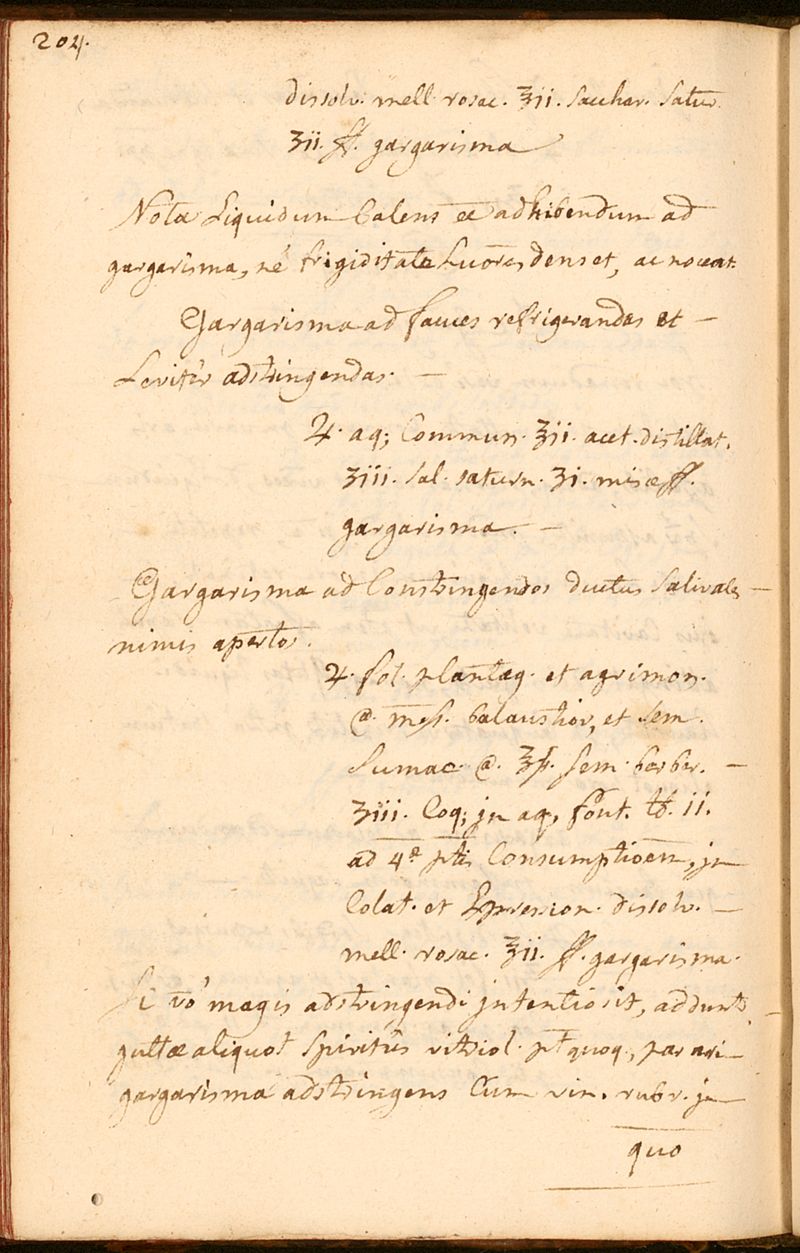 204.
dissolv. mell. rosac. ʒii. Sacchar. Satur.
ʒii. ff. gargarisma
Nota Liquidum Calens ee adhibendum ad
gargarisma, né frigiditate humores denset, ac noceat.
Gargarisma ad fauces refrigerandas et –
Levitér adstringendas. –
♃. aq; Commun. ʒii. acet. distillat.
ʒiii. Sal. saturn. ʒi. misce ff.
gargarisma. –
Gargarisma ad Constringendos ductus Salivales –
nimis apertos.
♃. fol. plantag. et agrimon.
a. mss. balaustior, et Sem.
Sumac. a. ʒß. Sem. berber. –
ʒiii. Coq; jn aq, font. lb. ii.
ad 4ª ptis Consumptioem, jn
Colat. et Expression. dissolv. –
mell. rosac. ʒii. ff. gargarisma.
Si vó magis adstringendi jntentio sit, addunt
guttæ aliquot Spiritûs vitriol. pt quoq, parari –
gargarisma adstringens Cum vin. rubr. jn
quo